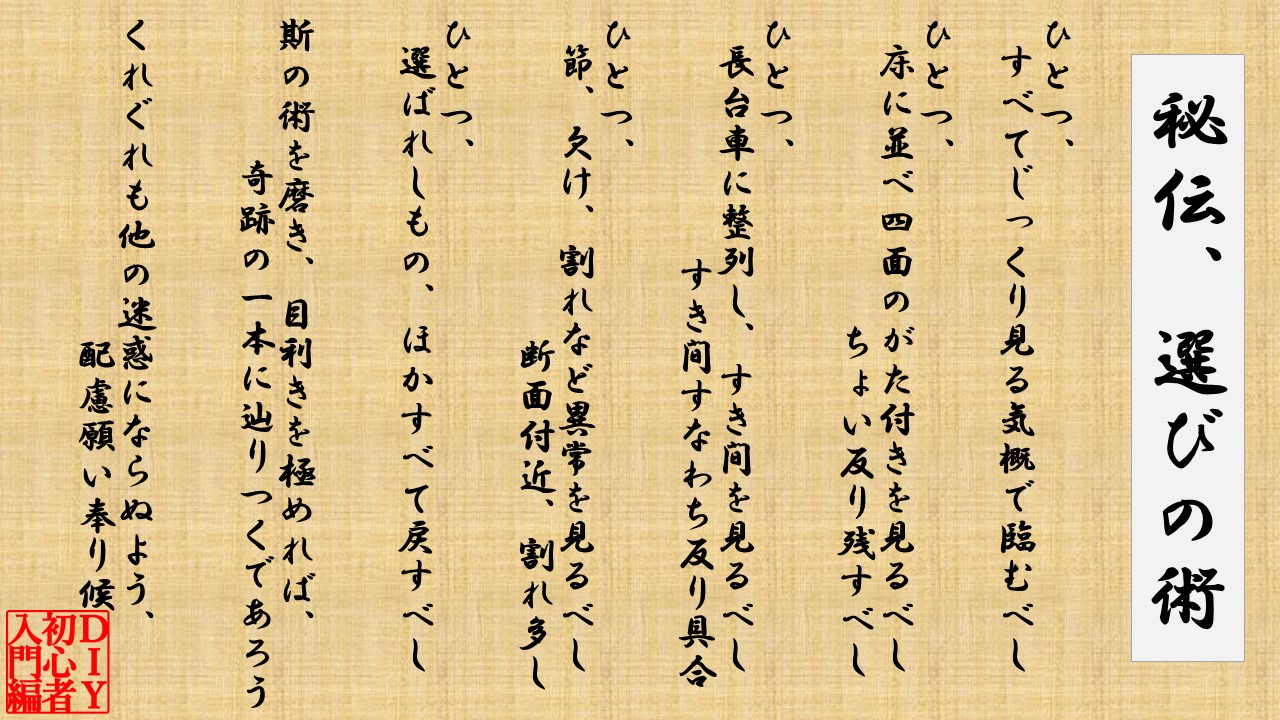 秘伝、選びの術
ひとつ、
すべてじっくり見る気概で臨むべし
ひとつ、
床に並べ四面のがた付きを見るべし
ちょい反り残すべし
ひとつ、
長台車に整列し、すき間を見るべし
すき間すなわち反り具合
ひとつ、
節、欠け、割れなど異常を見るべし
断面付近、割れ多し
ひとつ、
選ばれしもの、ほかすべて戻すべし
斯の術を磨き、目利きを極めれば、
奇跡の一本に辿りつくであろう
くれぐれも他の迷惑にならぬよう、
配慮願い奉り候
DIY
初心者
入門編